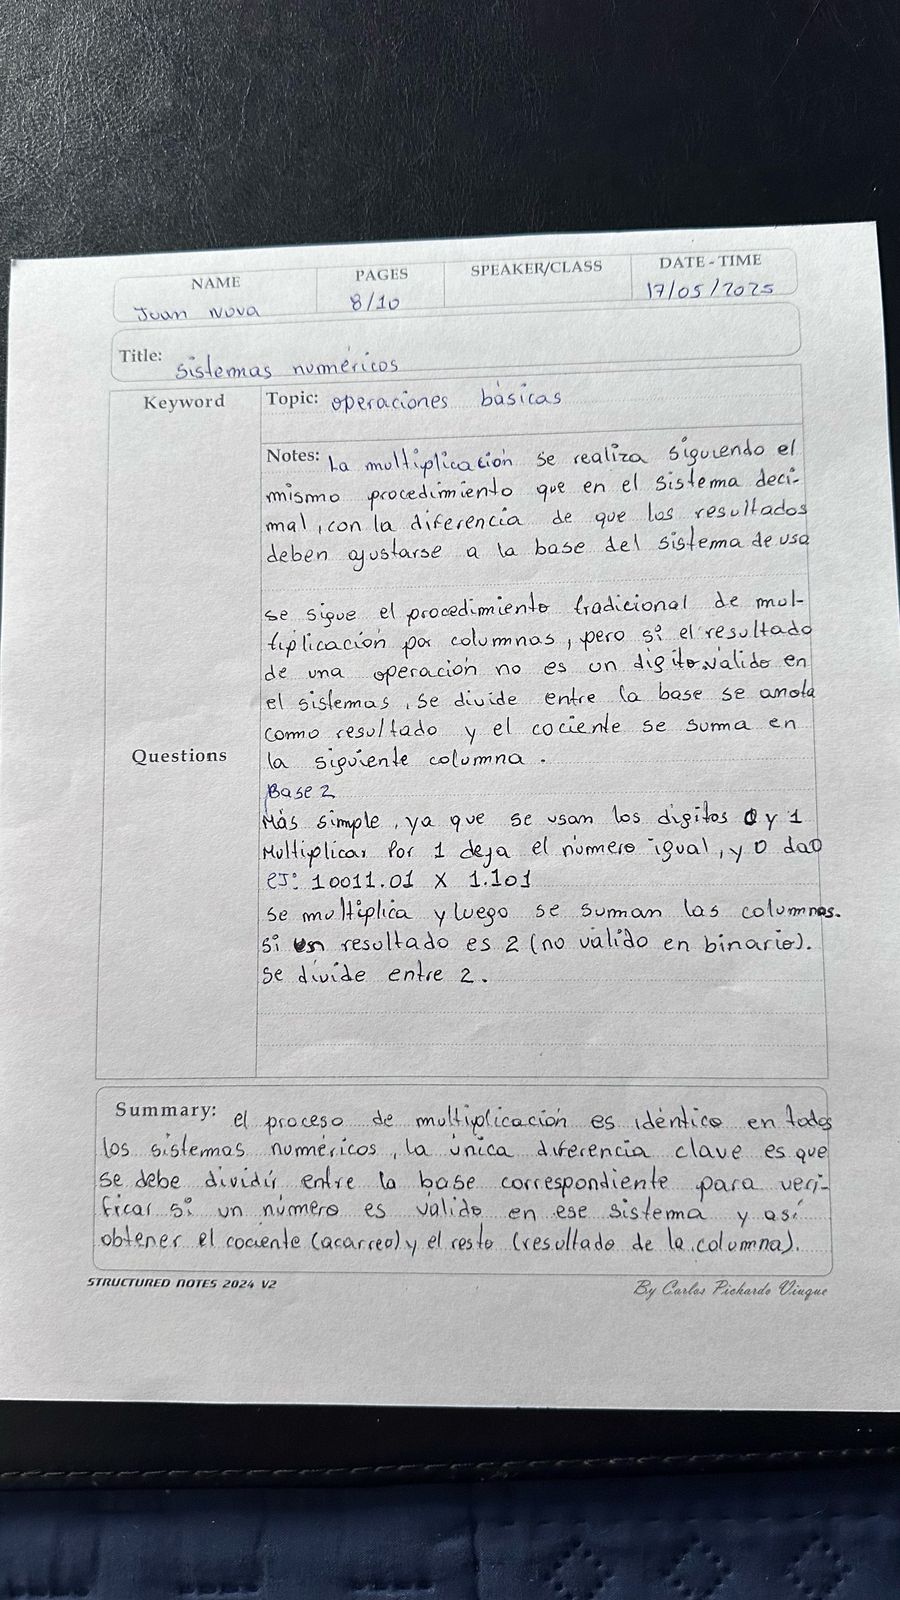 NAME PAGES SPEAKER/CLASS DATE - TIME
Juan Nova 8/10 17/05/2025
Title: sistemas numéricos
Keyword
Topic: operaciones básicas
Notes: La multiplicación se realiza siguiendo el
mismo procedimiento que en el sistema deci-
mal, con la diferencia de que los resultados
deben ajustarse a la base del sistema de uso
se sigue el procedimiento tradicional de mul-
tiplicación por columnas, pero si el resultado
de una operación no es un digito valido en
el sistemas, se divide entre la base se anota
como resultado y el cociente se suma en
la siguiente columna.
Questions
Base 2
Más simple, ya que se usan los digitos 0 y 1
Multiplicar Por 1 deja el número igual, y 0 da 0
eJ: 10011.01 X 1.101
se multiplica y luego se suman las columnas.
si un resultado es 2 (no valido en binario).
se divide entre 2.
Summary: el proceso de multiplicación es idéntico en todos
los sistemas numéricos, la única diferencia clave es que
se debe dividir entre la base correspondiente para veri-
ficar si un número es válido en ese sistema y así
obtener el cociente (acarreo) y el resto (resultado de la columna).
STRUCTURED NOTES 2024 V2
By Carlos Pichardo Viuque